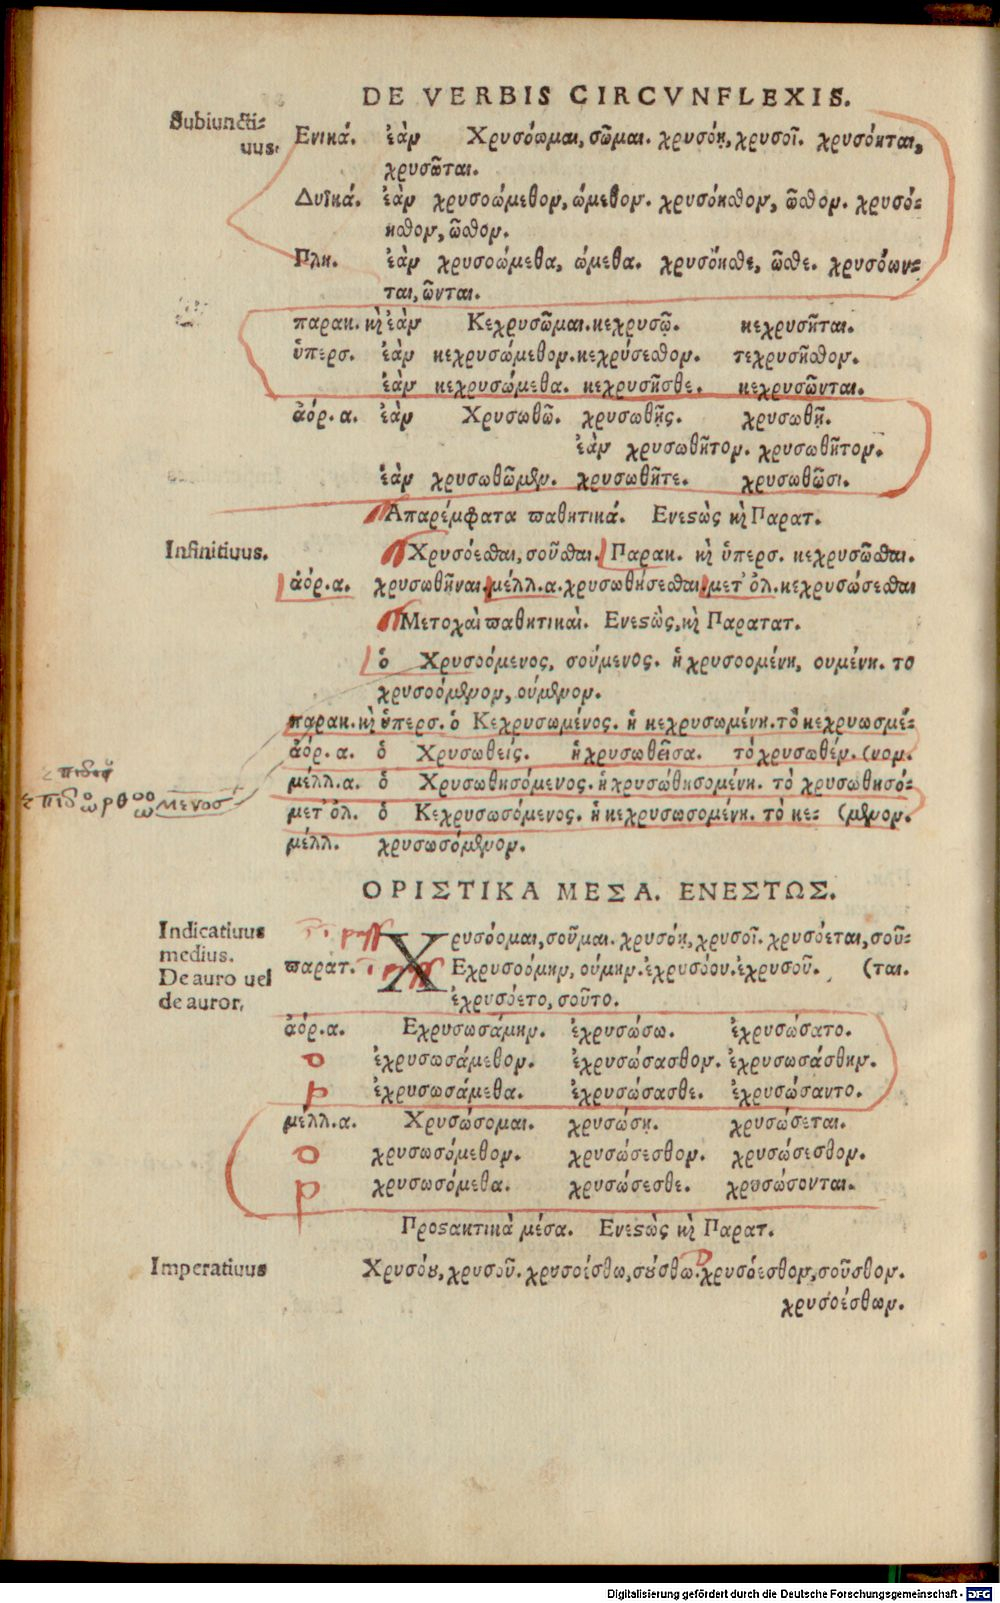 DE VERBIS CIRCVNFLEXIS.
Subiuncti-
uus.
Ενικά. ἐὰν Χρυσόωμαι, σῶμαι. χρυσόῃ, χρυσοῖ. χρυσόηται,
χρυσῶται.
Δυϊκά. ἐὰν χρυσοώμεθον, ώμεθον. χρυσόησθον, ῶσθον. χρυσό-
ησθον, ῶσθον.
Πλη. ἐὰν χρυσοώμεθα, ώμεθα. χρυσόησθε, ῶσθε. χρυσόων-
ται, ῶνται.
παρακ. κὶ ἐὰν Κεχρυσῶμαι. κεχρυσῷ. κεχρυσῆται.
ὑπερσ. ἐὰν κεχρυσώμεθον. κεχρύσεσθον. τεχρυσῆσθον.
ἐὰν κεχρυσώμεθα. κεχρυσῆσθε. κεχρυσῶνται.
ἀόρ. α. ἐὰν Χρυσωθῶ. χρυσωθῇς. χρυσωθῇ.
ἐὰν χρυσωθῆτον. χρυσωθῆτον.
ἐὰν χρυσωθῶμεν. χρυσωθῆτε. χρυσωθῶσι.
Απαρέμφατα παθητικά. Ενεςὼς κὶ Παρατ.
Infinitiuus.
Χρυσόεσθαι, σοῦσθαι. Παρακ. κὶ ὑπερσ. κεχρυσῶσθαι.
ἀόρ. α. χρυσωθῆναι. μέλλ. α. χρυσωθήσεσθαι. μετ' ὀλ. κεχρυσώσεσθαι
Μετοχαὶ παθητικαὶ. Ενεςὼς, κὶ Παρατατ.
ὁ Χρυσοόμενος, σούμενος. ἡ χρυσοομένη, ουμένη. το
χρυσοόμενον, ούμενον.
παρακ. κὶ ὑπερσ. ὁ Κεχρυσωμένος. ἡ κεχρυσωμένη. τὸ κεχρυωσμέ-
ἀόρ. α. ὁ Χρυσωθείς. ἡ χρυσωθεῖσα. τὸ χρυσωθέν. (νον.
μέλλ. α. ὁ Χρυσωθησόμενος. ἡ χρυσωθησομένη. τὸ χρυσωθησό-
μετ' ὀλ. ὁ Κεχρυσωσόμενος. ἡ κεχρυσωσομένη. τὸ κε- (μενον.
μέλλ. χρυσωσόμενον.
ΟΡΙΣΤΙΚΑ ΜΕΣΑ. ΕΝΕΣΤΩΣ.
Indicatiuus
medius.
De auro uel
de auror,
Χρυσόομαι, σοῦμαι. χρυσόῃ, χρυσοῖ. χρυσόεται, σοῦ-
παρατ. Εχρυσοόμην, ούμην. ἐχρυσόου. ἐχρυσοῦ. (ται.
ἐχρυσόετο, σοῦτο.
ἀόρ. α. Εχρυσωσάμην. ἐχρυσώσω. ἐχρυσώσατο.
ἐχρυσωσάμεθον. ἐχρυσώσασθον. ἐχρυσωσάσθην.
p ἐχρυσωσάμεθα. ἐχρυσώσασθε. ἐχρυσώσαντο.
μέλλ. α. Χρυσώσομαι. χρυσώσῃ. χρυσώσεται.
χρυσωσόμεθον. χρυσώσεσθον. χρυσώσεσθον.
p χρυσωσόμεθα. χρυσώσεσθε. χρυσώσονται.
Προςακτικὰ μέσα. Ενεςὼς κὶ Παρατ.
Imperatiuus
Χρυσόȣ, χρυσοῦ. χρυσοέσθω, σȣ́σθω. χρυσόεσθον, σοῦσθον.
χρυσοέσθων.
Digitalisierung gefördert durch die Deutsche Forschungsgemeinschaft - DFG